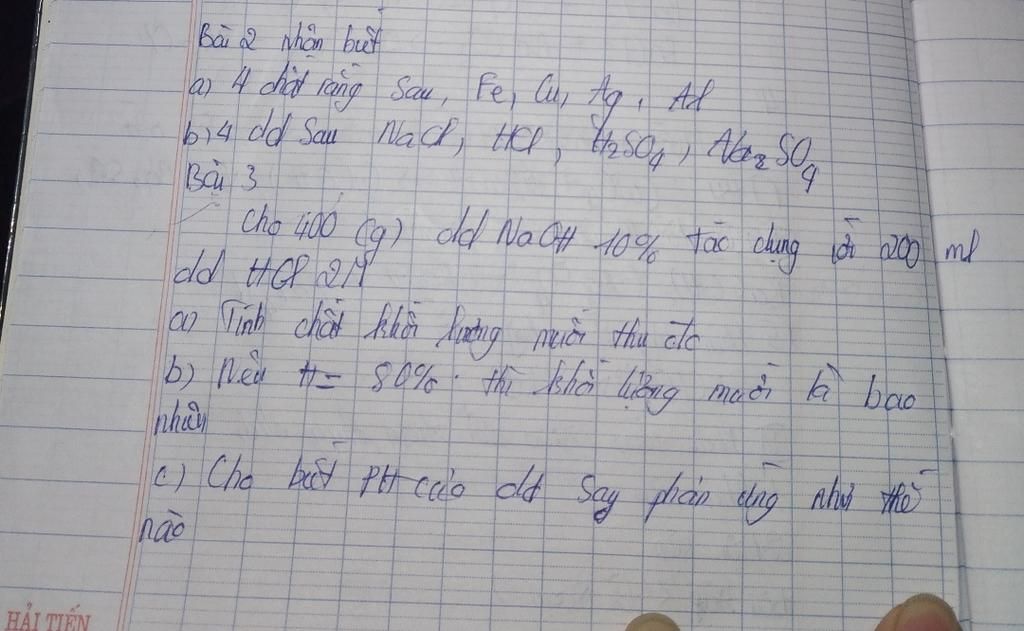 Bài 2 nhận biết
a) 4 chất rắng sau, Fe, Cu, Ag, Al
b) 4 dd sau NaCl, HCl, H₂SO₄, Na₂SO₄
Bài 3
Cho 400 (g) dd NaOH 10% tác dụng với 200 ml
dd HCl 2M
a) Tính chất khối lượng muối thu đc
b) Nếu H = 80% thì khối lượng muối là bao
nhiêu
c) Cho biết PH của dd say phản ứng như thế
nào
HẢI TIẾN